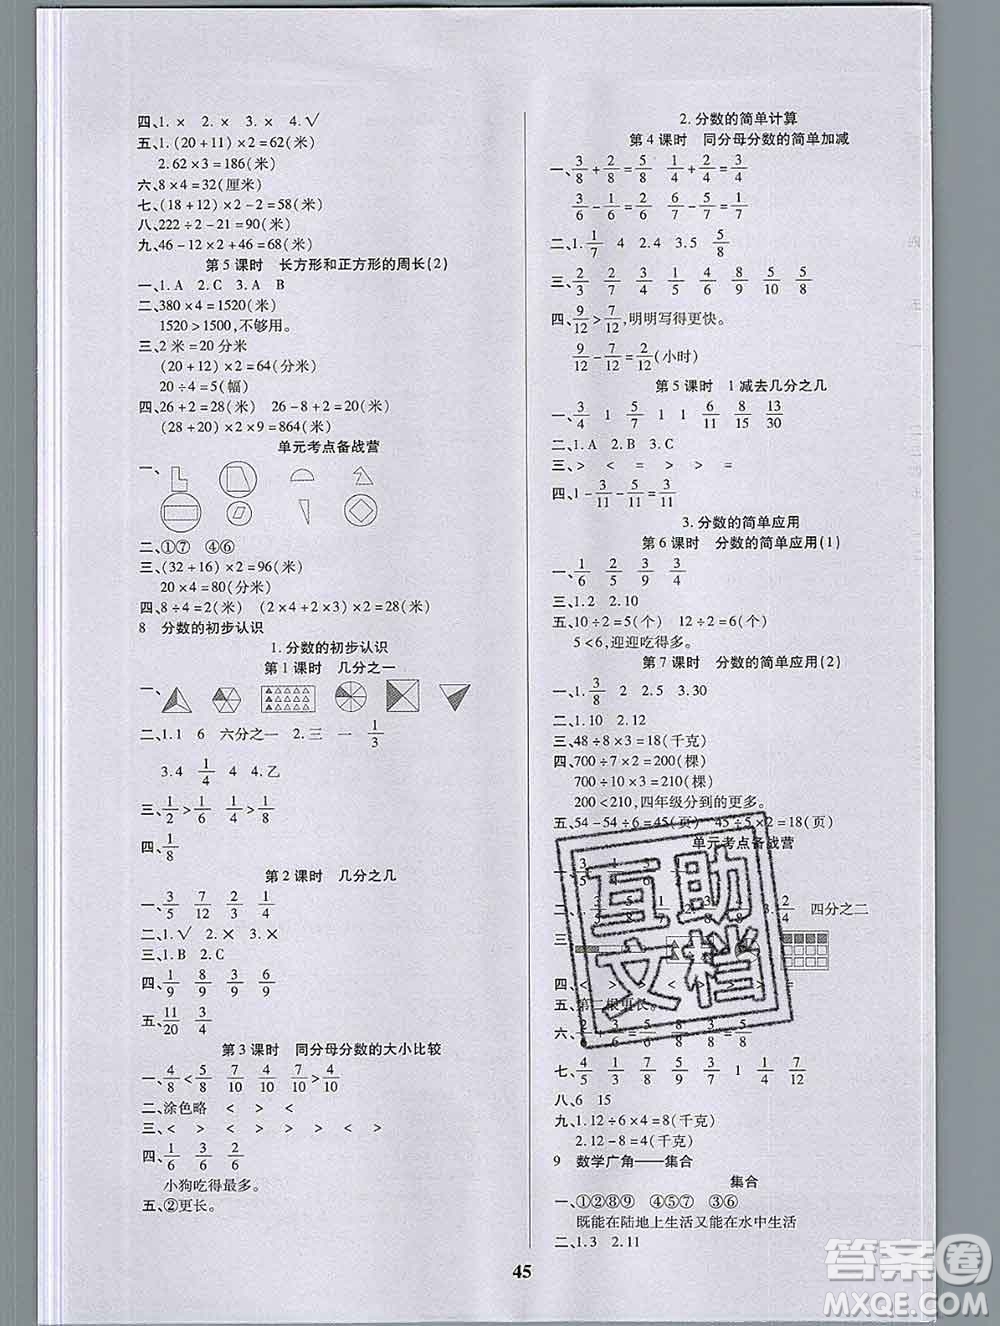 四、1. × 2. × 3. × 4. √
五、1. (20+11)×2=62(米)
2. 62×3=186(米)
六、8×4=32(厘米)
七、(18+12)×2-2=58(米)
八、222÷2-21=90(米)
九、46-12×2+46=68(米)
第5课时 长方形和正方形的周长(2)
一、1. A 2. C 3. A B
二、380×4=1520(米)
1520>1500,不够用。
三、2米=20分米
(20+12)×2=64(分米)
20÷4=5(幅)
四、26+2=28(米) 26-8+2=20(米)
(28+20)×2×9=864(米)
单元考点备战营
一、
二、①⑦ ④⑥
三、(32+16)×2=96(米)
20×4=80(分米)
四、8÷4=2(米) (2×4+2×3)×2=28(米)
8 分数的初步认识
1. 分数的初步认识
第1课时 几分之一
一、
二、1. 1 6 六分之一 2. 三 一 1/3
3. 4 1/4 4 4. 乙
三、1/2>1/6 1/6>1/8
四、1/8
第2课时 几分之几
一、3/5 7/12 3/9 2/4
二、1. √ 2. × 3. ×
三、1. B 2. C
四、1/9 8/9 3/9 6/9
五、11/20 3/4
第3课时 同分母分数的大小比较
一、4/8<5/8 7/10 4/10 7/10>4/10
二、涂色略 < > <
三、< < > > > > <
四、1/6 3/6 2/6
小狗吃得最多。
五、②更长。
2. 分数的简单计算
第4课时 同分母分数的简单加减
一、3/8+2/8=5/8 1/4+2/4=3/4
3/6-2/6=1/6 3/7-2/7=1/7
二、1. 1/7 4 2. 4 3. 5 5/8
三、2/3 3/7 6/9 7/8 2/5 5/8
四、9/12>7/12,明明写得更快。
9/12-7/12=2/12(小时)
第5课时 1减去几分之几
一、3/4 1 5/7 1 1 6/11 8/15 13/30
二、1. A 2. B 3. C
三、> < = > > =
四、1-3/11-5/11=3/11
3. 分数的简单应用
第6课时 分数的简单应用(1)
一、1/6 2/6 3/9 4/9
三、1. 2 2. 10
五、10÷2=5(个) 12÷2=6(个)
5<6,迎迎吃得多。
第7课时 分数的简单应用(2)
一、1. 3/8 2 2. 5 3. 20
二、1. 10 2. 12
三、48÷8×3=18(千克)
四、700÷7×2=200(棵)
700÷10×3=210(棵)
200<210,四年级分到的更多。
五、54-54÷6=45(页) 45÷5×2=18(页)
单元考点备战营
一、3/5
二、 3. 2/4 四分之二
三、
四、< > =
五、第二根更长。
六、
七、4/5 1/5 7/8 4/8 4/11 7/12
八、6 15
九、1. 12÷6×4=8(千克)
2. 12-8=4(千克)
9 数学广角——集合
集合
一、①②⑧⑨ ④⑤⑦ ③⑥
既能在陆地上生活又能在水中生活
二、1. 3 2. 11
45
互助文档
答案圈
MXQE.COM